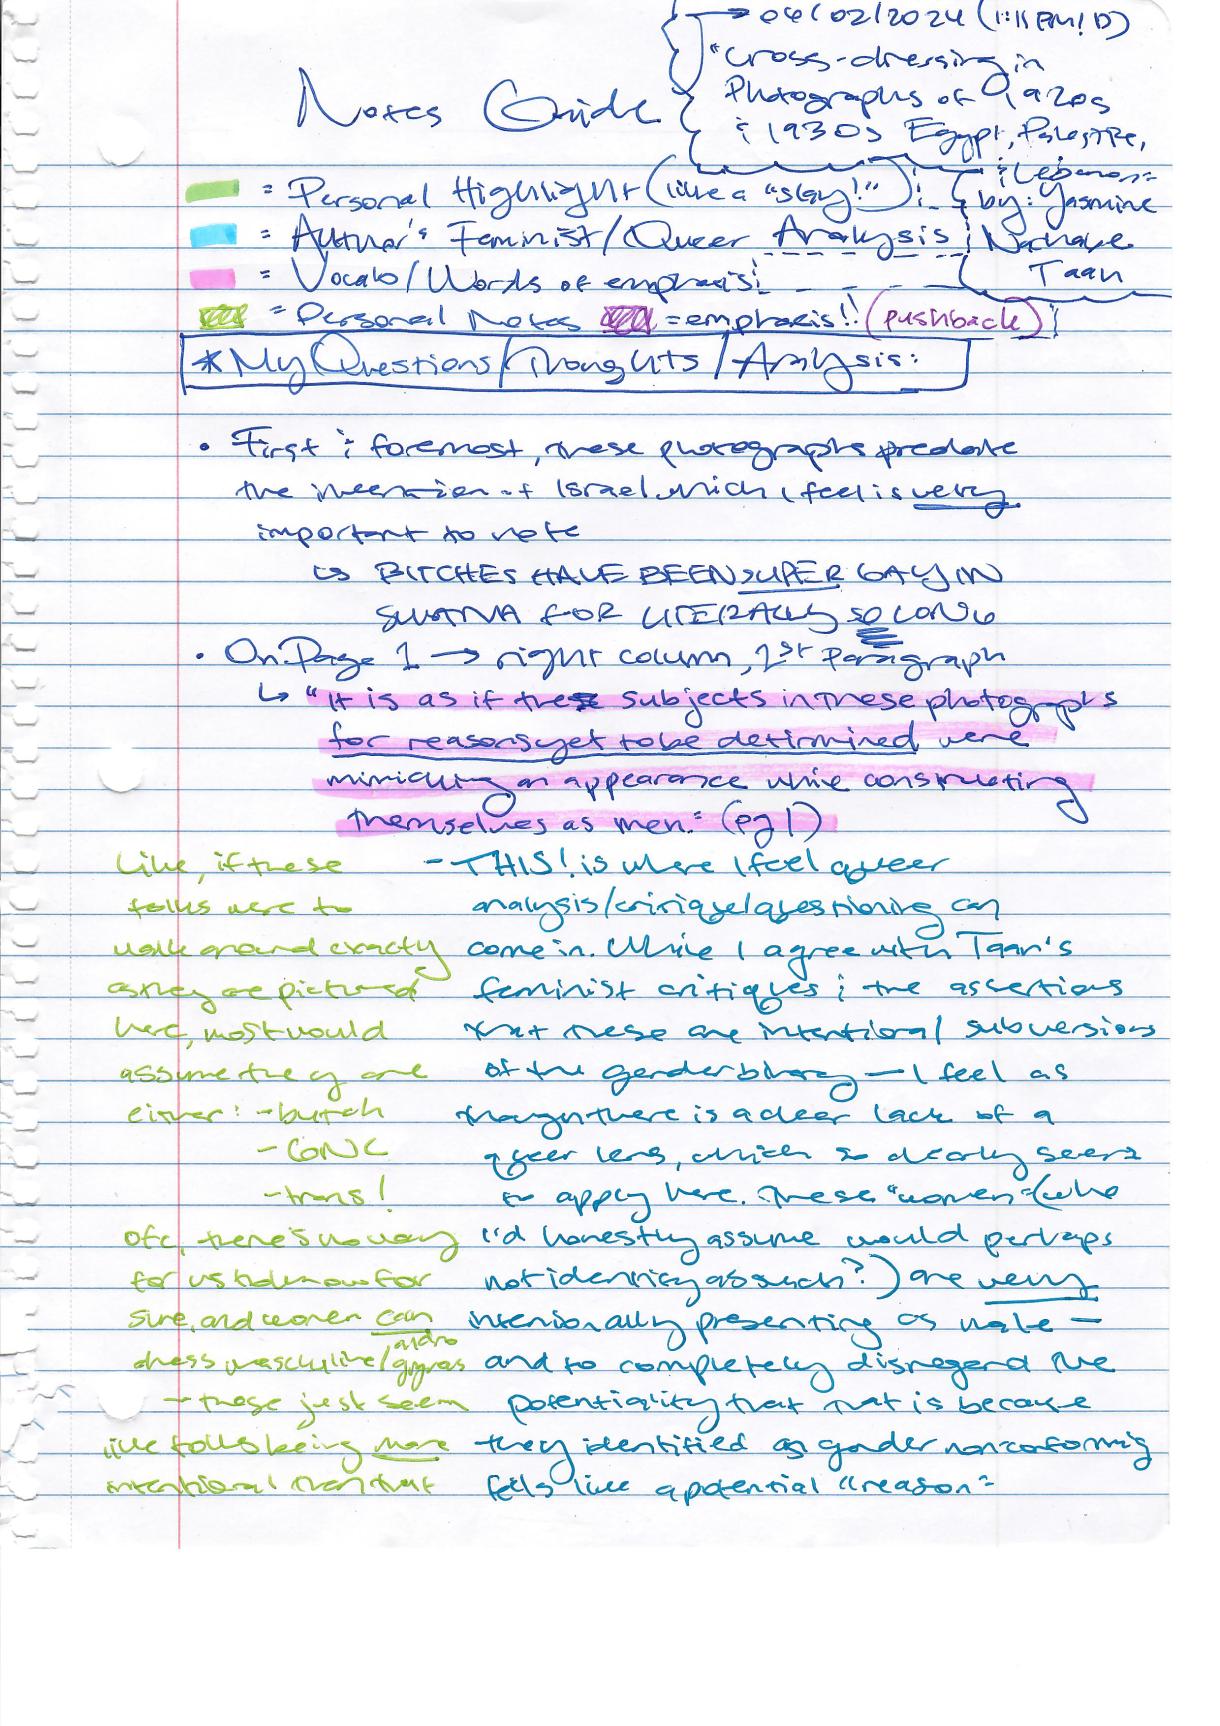 Notes Guide
→ 04/02/2024 (1:11 PM! D)
"Cross-dressing in
Photographs of 1920s
& 1930s Egypt, Palestine,
& Lebanon"
by: Yasmine
Nachabe
Taan
= Personal Highlight (like a "slay!")
= Author's Feminist/Queer Analysis
= Vocab/Words of emphasis
= Personal Notes = emphasis!! (pushback)
*My Questions/Thoughts/Analysis:
• First & foremost, these photographs predate
the invention of Israel which I feel is very
important to note
↳ BITCHES HAVE BEEN SUPER GAY IN
SWANA FOR LITERALLY SO LONG
• On Page 1 → right column, 1st Paragraph
↳ "It is as if these subjects in these photographs
for reasons yet to be detirmined were
mimicking an appearance while constructing
themselves as men." (pg 1)
- THIS! is where I feel queer
analysis/critique/questioning can
come in. While I agree with Taan's
feminist critiques & the assertions
that these are intentional subversions
of the gender binary — I feel as
though there is a clear lack of a
queer lens, which so clearly seems
to apply here. These "women" (who
I'd honestly assume would perhaps
not identify as such?) are very
intenionally presenting as male —
and to completely disregard the
potentiality that that is because
they identified as gender nonconforming
feels like a potential "reason"
Like, if these
folks were to
walk around exactly
as they are pictured
here, most would
assume they are
either: - butch
- GNC
- trans!
ofc, there's no way
for us to know for
sure, and women can
dress masculine/androgynous
- these just seem
like folks being more
intentional than that